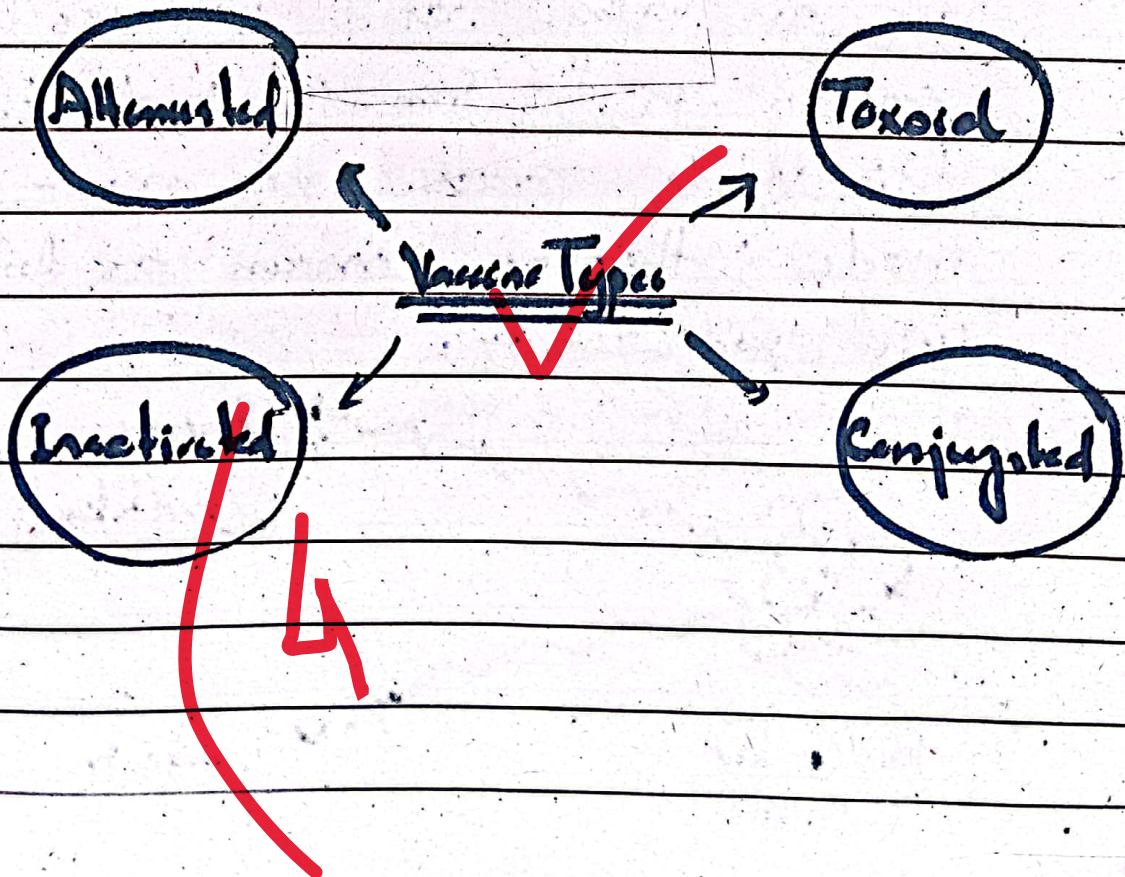 Attenuated
Toxoid
Vaccine Types
Inactivated
Conjugated
4